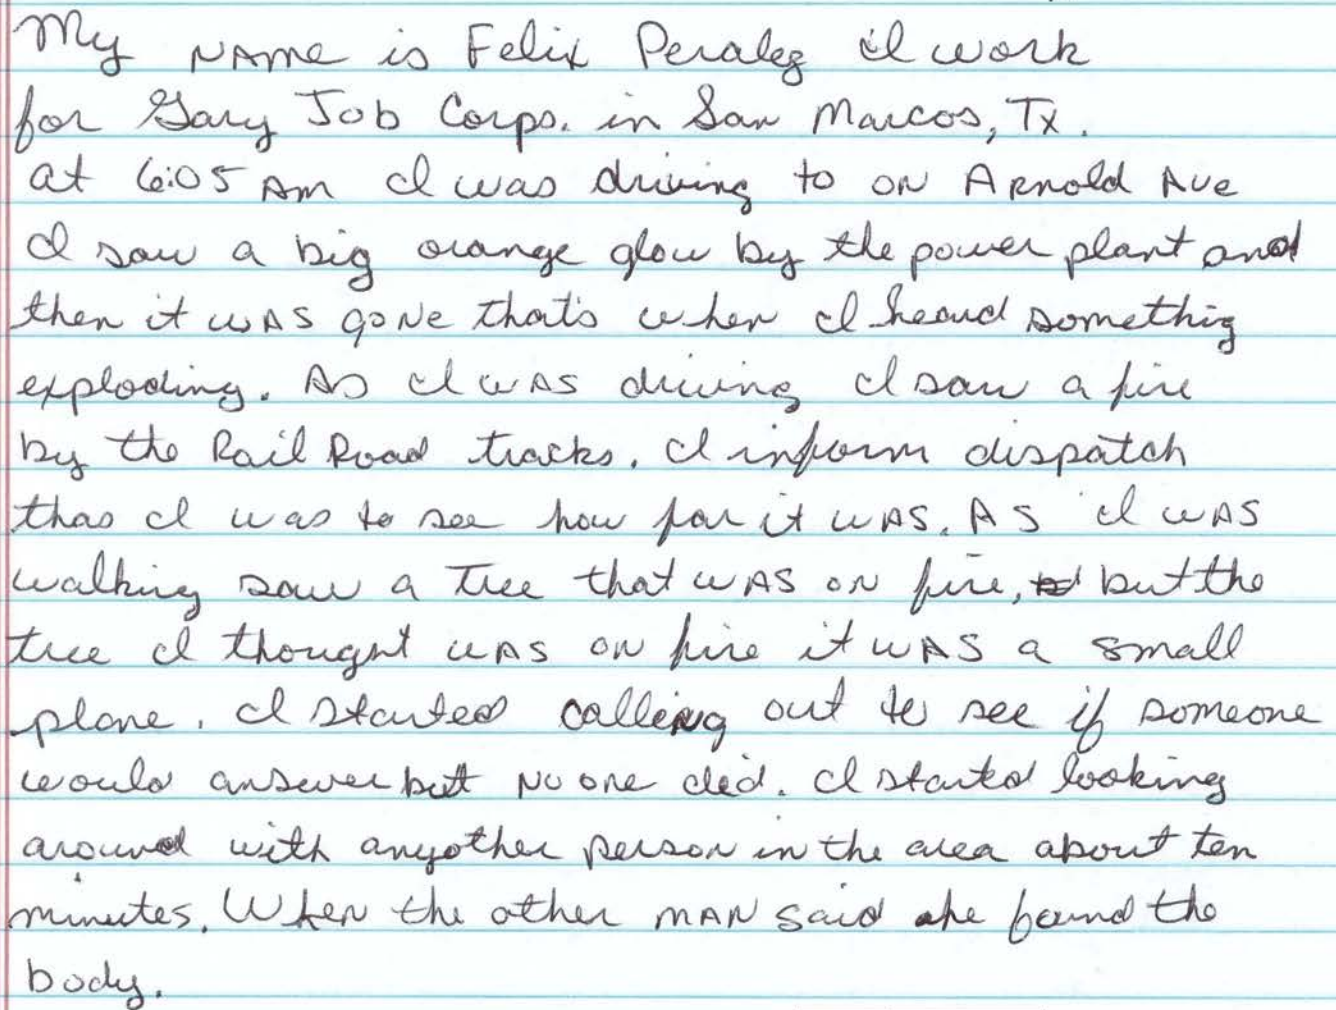 My NAME is Felix Peralez I work
for Gary Job Corps. in San Marcos, Tx.
at 6:05 AM I was driving to ON Arnold Ave
I saw a big orange glow by the power plant and
then it WAS gone that's when I heard somethig
exploding. As I WAS driving I saw a fire
by the Rail Road tracks. I inform dispatch
thas I was to see how far it WAS. AS I WAS
walking saw a Tree that WAS ON fire, but the
tree I thought WAS ON fire it WAS a small
plane. I started calling out to see if someone
would answer but NO one did. I started looking
around with anyother person in the area about ten
minutes. When the other MAN said he found the
body.